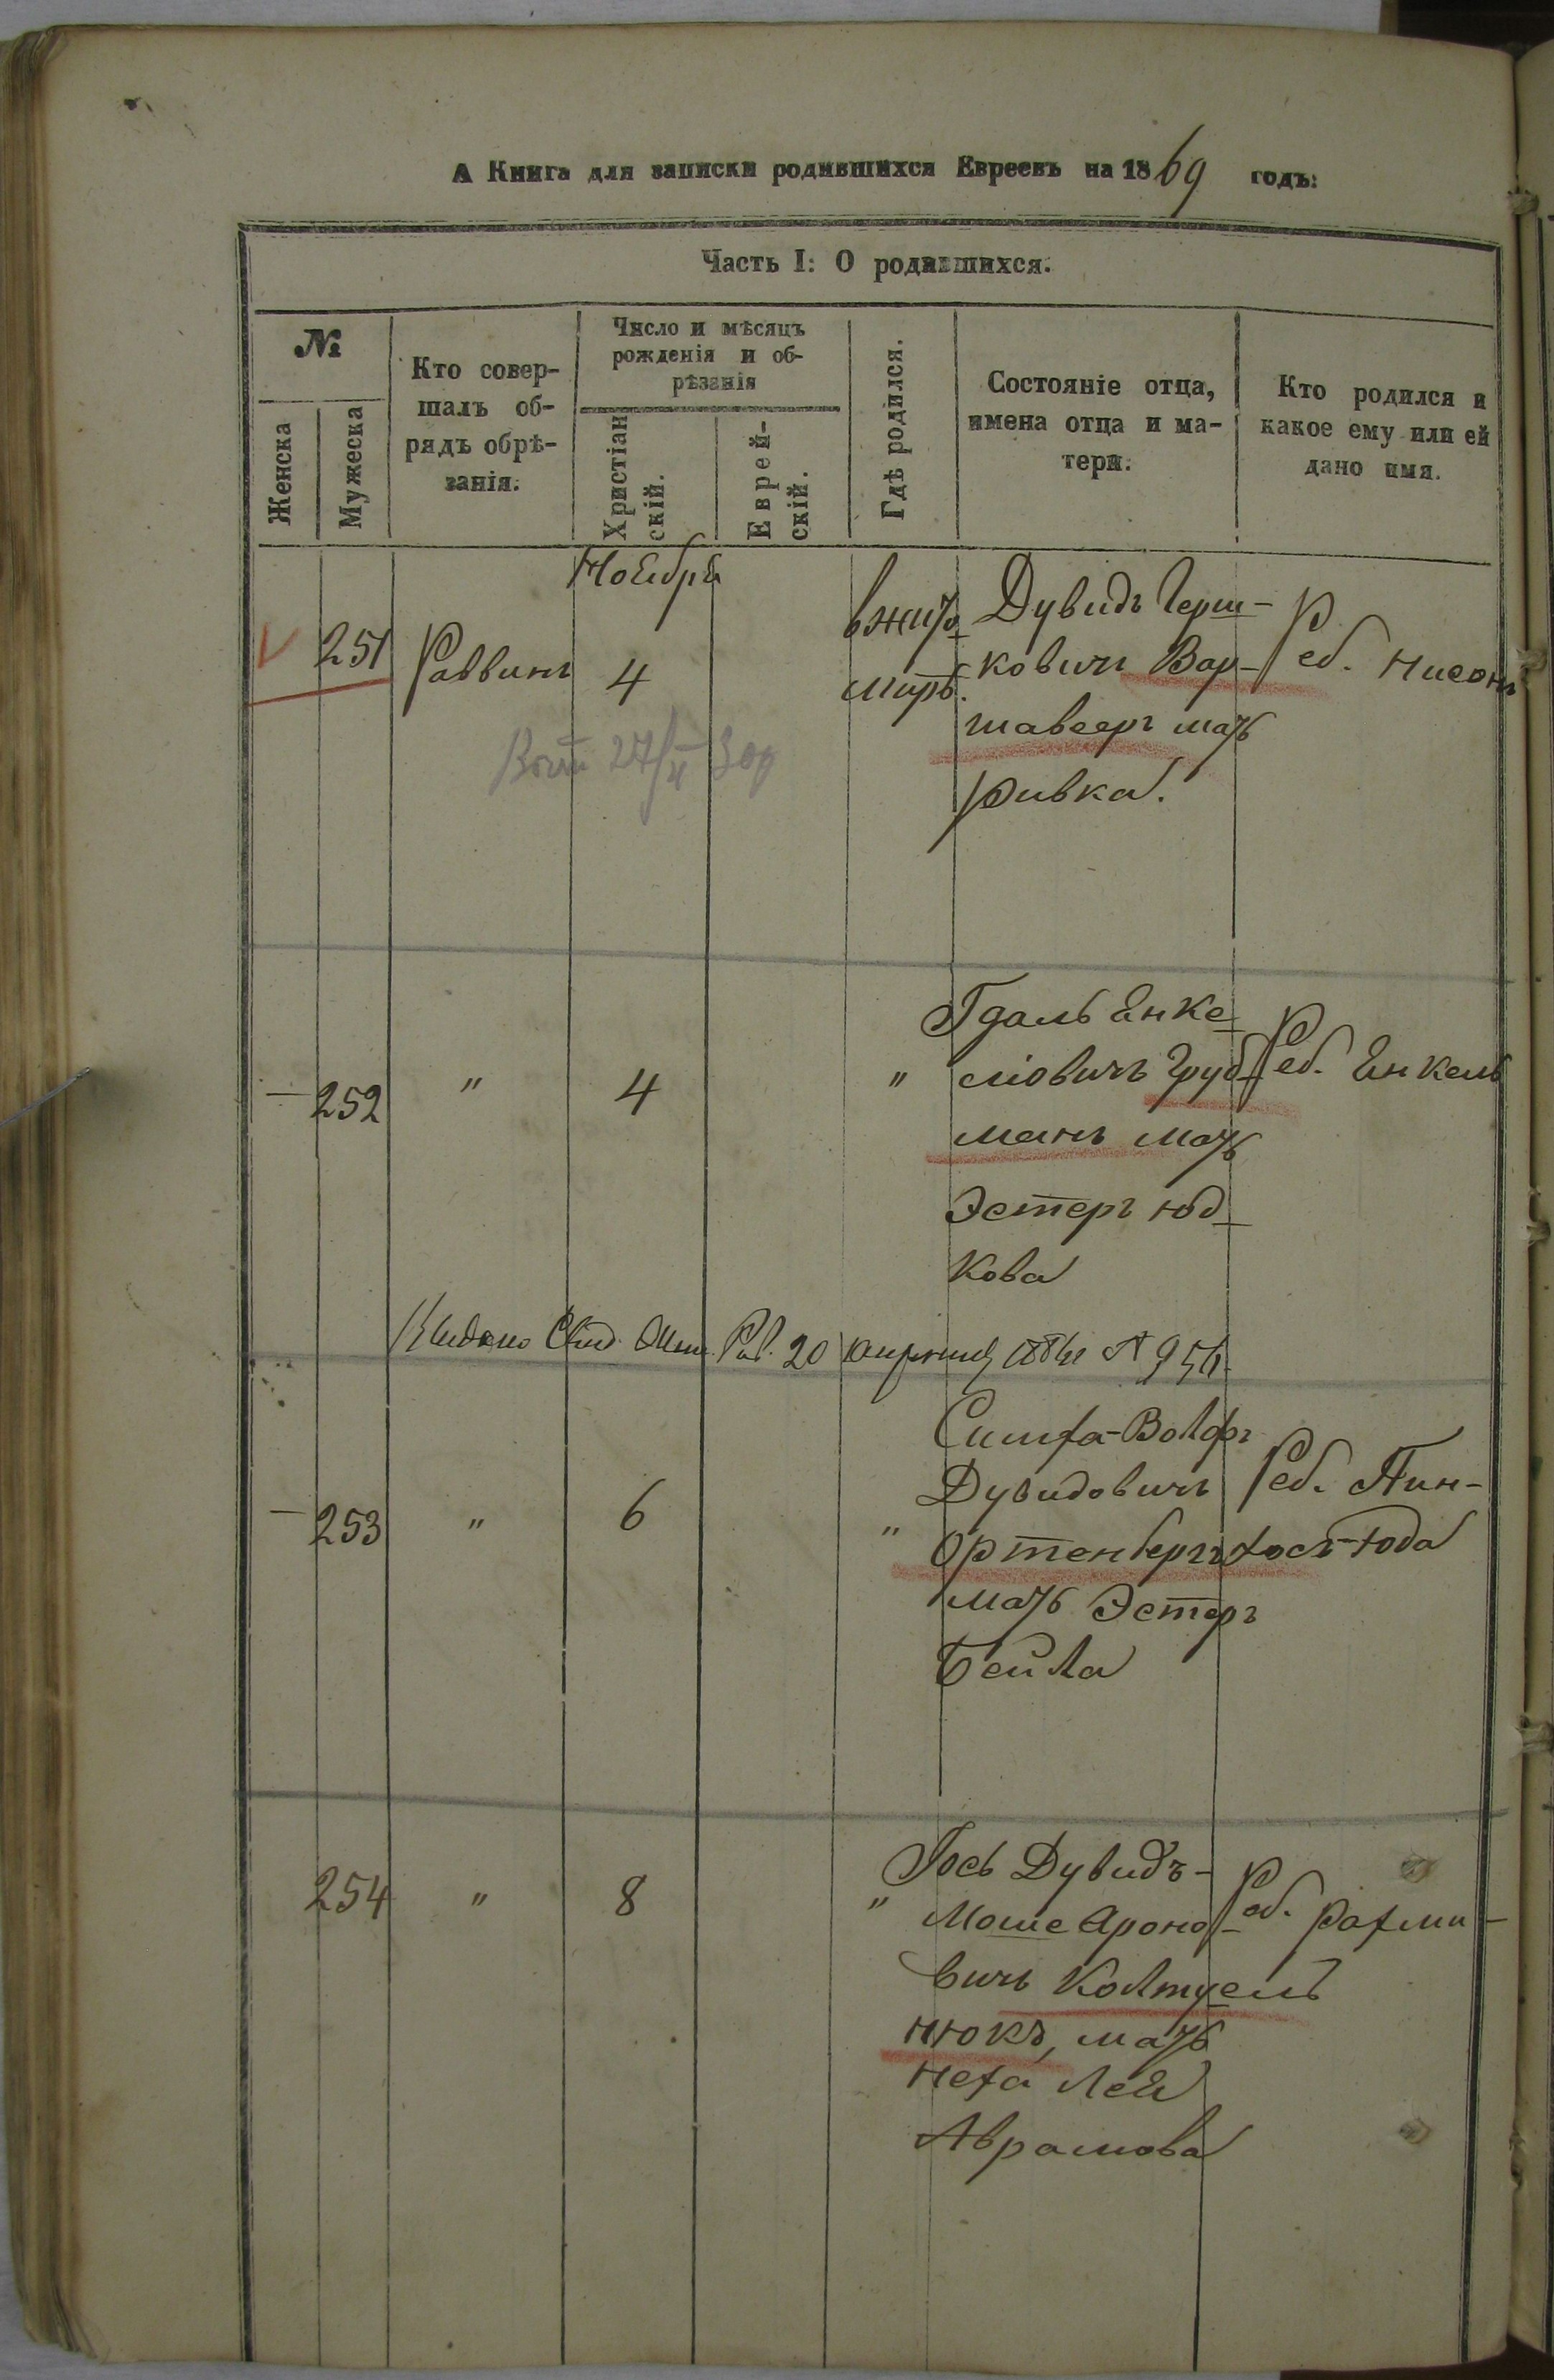 А Книга для записки родившихся Евреевъ на 1869 годъ:
Часть I: О родившихся.
№
Женска
Мужеска
Кто совер-
шалъ об-
рядъ обрѣ-
занія.
Число и мѣсяцъ
рожденія и об-
рѣзанія
Христіан
скій.
Еврей-
скій.
Гдѣ родился.
Состояніе отца,
имена отца и ма-
тери.
Кто родился и
какое ему или ей
дано имя.
Ноября
251
Раввинъ
4
в Жито
миръ.
Дувидъ Герш-
ковичъ Вар-
шавееръ мать
Ривка.
Реб. Нисонъ
252
"
4
"
Гдаль Енке-
ліовичъ Груб-
манъ мать
Эстеръ Юд-
кова
Реб. Енкель
20
253
"
6
"
Симха-Волфъ
Дувидовичъ
Ортенбергъ
мать Эстеръ
Бейла
Реб. Пин-
хосъ-Юда
254
"
8
"
Іось Дувидъ-
Моше Ароно-
вичъ Колту-
нюкъ, мать
Неха Лея
Аврамова
Реб. Рахми-
ель